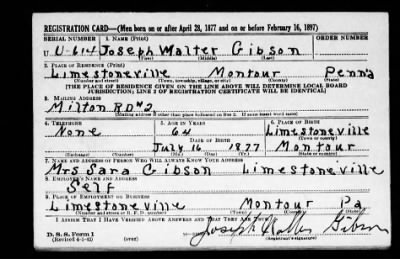 REGISTRATION CARD—(Men born on or after April 28, 1877 and on or before February 16, 1897)
SERIAL NUMBER 1. NAME (Print)
U U-614 Joseph Walter Gibson
(First) (Middle) (Last)
2. PLACE OF RESIDENCE (Print)
Limestoneville Montour Penna
(Number and street) (Town, township, village, or city) (County) (State)
[THE PLACE OF RESIDENCE GIVEN ON THE LINE ABOVE WILL DETERMINE LOCAL BOARD
JURISDICTION; LINE 2 OF REGISTRATION CERTIFICATE WILL BE IDENTICAL]
3. MAILING ADDRESS
Milton RD#2
[Mailing address if other than place indicated on line 2. If same insert word same]
4. TELEPHONE 5. AGE IN YEARS 6. PLACE OF BIRTH
None 64 Limestoneville
DATE OF BIRTH (Town or county)
July 16 1877 Montour
(Exchange) (Number) (Mo.) (Day) (Yr.) (State or country)
7. NAME AND ADDRESS OF PERSON WHO WILL ALWAYS KNOW YOUR ADDRESS
Mrs Sara Gibson Limestoneville
8. EMPLOYER'S NAME AND ADDRESS
Self
9. PLACE OF EMPLOYMENT OR BUSINESS
Limestoneville Montour Pa
(Number and street or R. F. D. number) (Town) (County) (State)
I AFFIRM THAT I HAVE VERIFIED ABOVE ANSWERS AND THAT THEY ARE TRUE.
D. S. S. Form 1
(Revised 4-1-42) (over)
Joseph Walter Gibson